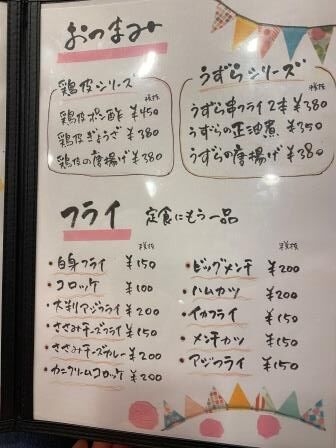 おつまみ
鶏皮シリーズ
税抜
鶏皮ポン酢 ¥450
鶏皮ぎょうざ ¥380
鶏皮の唐揚げ ¥380
うずらシリーズ
税抜
うずら串フライ2本 ¥380
うずらの正油煮 ¥350
うずらの唐揚げ ¥380
フライ 定食にもう一品
税抜
・白身フライ ¥150
・コロッケ ¥100
・大判アジフライ ¥200
・ささみチーズフライ ¥150
・ささみチーズカレー ¥200
・カニクリームコロッケ ¥200
税抜
・ビッグメンチ ¥200
・ハムカツ ¥200
・イカフライ ¥150
・メンチカツ ¥150
・アジフライ ¥150